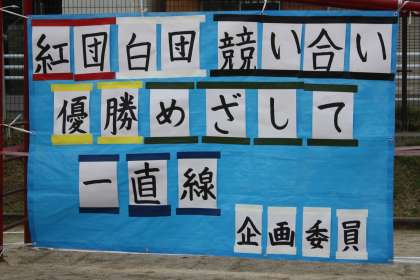 紅団白団競い合い
優勝めざして
一直線
企画委員